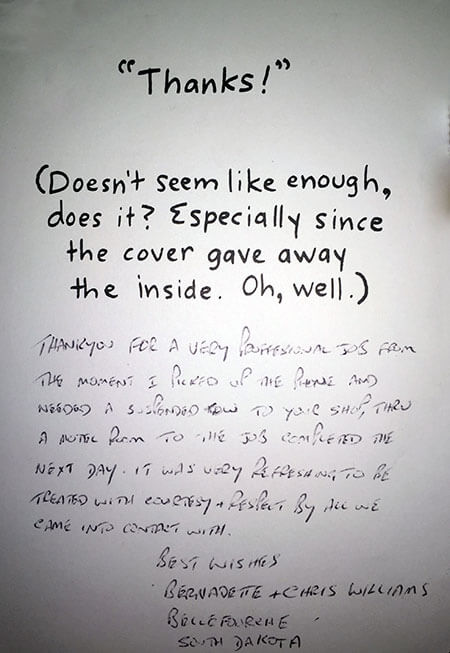 "Thanks!"
(Doesn't seem like enough,
does it? Especially since
the cover gave away
the inside. Oh, well.)
THANKYOU FOR A VERY PROFFESSIONAL JOB FROM
THE MOMENT I PICKED UP THE PHONE AND
NEEDED A SUSPENDED TOW TO YOUR SHOP, THRU
A MOTEL ROOM TO THE JOB COMPLETED THE
NEXT DAY. IT WAS VERY REFRESHING TO BE
TREATED WITH COURTESY + RESPECT BY ALL WE
CAME INTO CONTACT WITH.
BEST WISHES
BERNADETTE + CHRIS WILLIAMS
BELLEFOURCHE
SOUTH DAKOTA